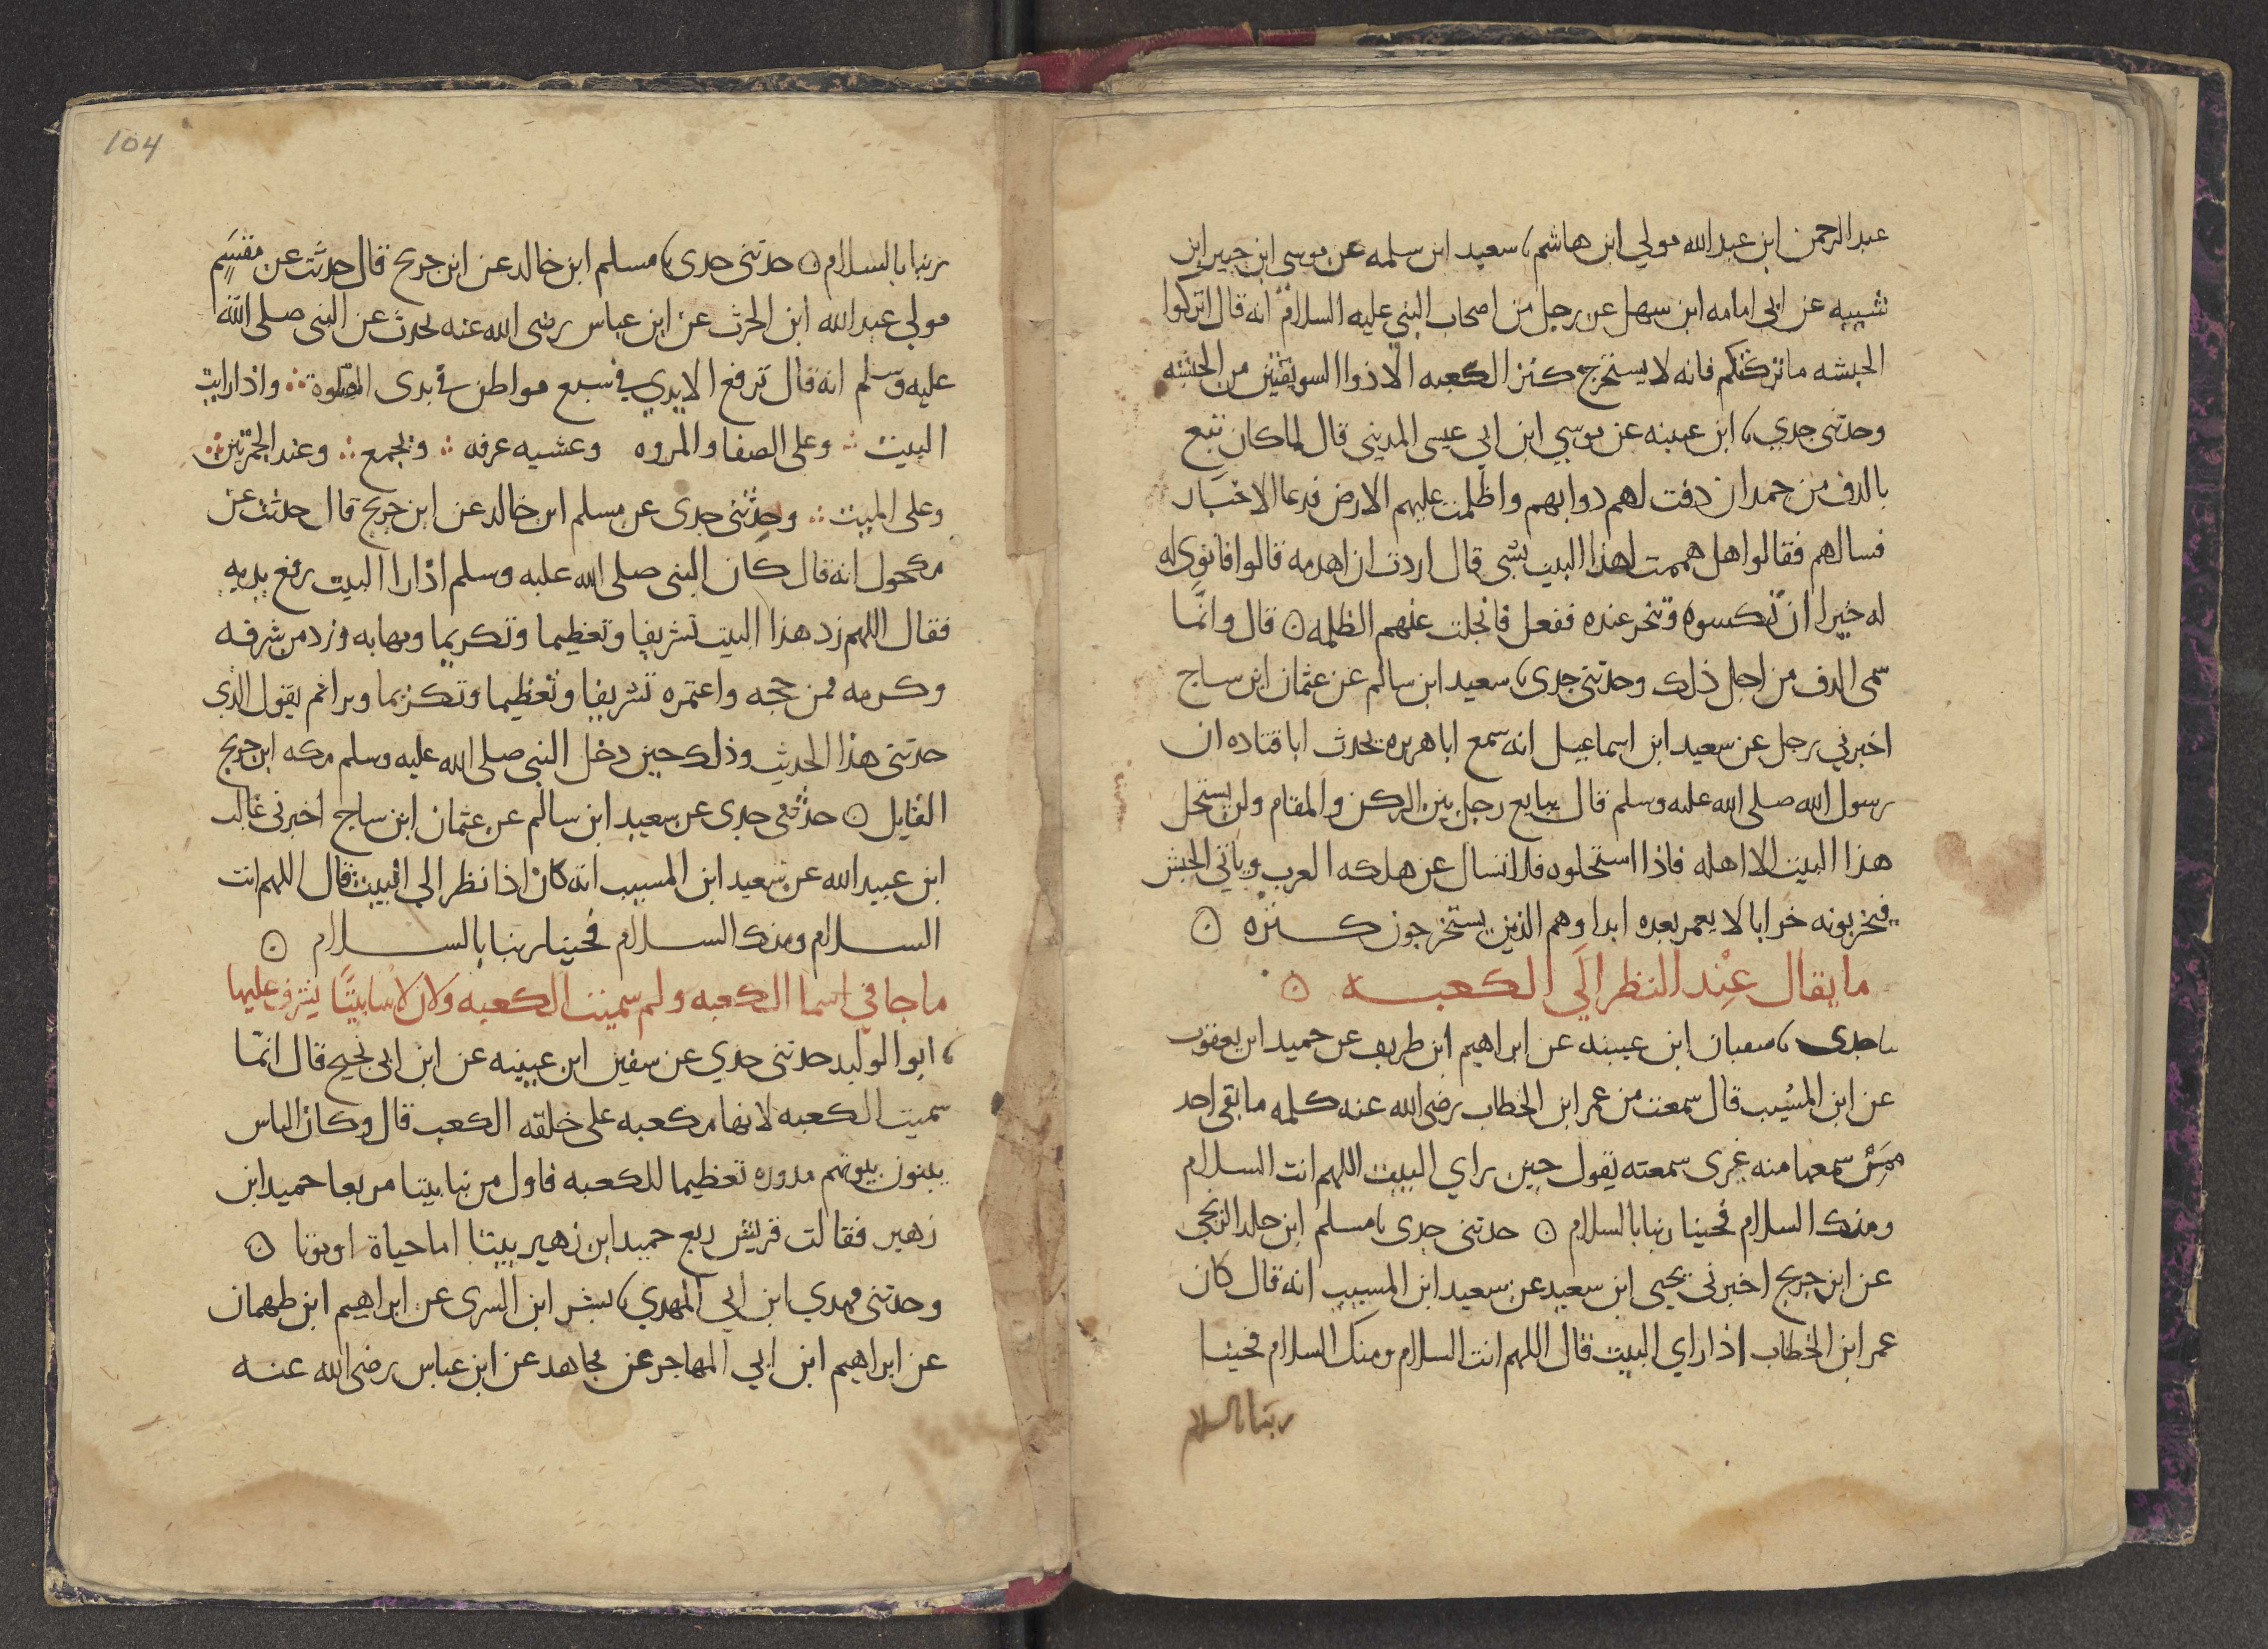 عبد الرحمن ابن عبد الله مولي ابن هاشم نا سعيد ابن سلمه عن موسى ابن جبير ابن
شيبه عن ابي امامه ابن سهل عن رجل من اصحاب النبي عليه السلام انه قال اتركوا
الحبشه ما تركتكم فانه لا يستخرج كنز الكعبه الا ذوا السويقتين من الحبشه
وحدثنى جدي نا ابن عيينه عن موسي ابن ابي عيسى المديني قال لما كان تبع
بالدف من حمدان دفت لهم دوابهم واظلمت عليهم الارض فدعا الاحبار
فسالهم فقالوا هل هممت لهذا البيت بشى قال اردت ان اهدمه قالوا فانوِى له
له خيرا ان تكسوه وتنحر عنده ففعل فانجلت عنهم الظلمه ۞ قال وانما
سمى الدف من اجل ذلك وحدثنى جدى نا سعيد ابن سالم عن عثمان ابن ساج
اخبرني رجل عن سعيد ابن اسماعيل انه سمع ابا هريره يحدث ابا قتاده ان
رسول الله صلى الله عليه وسلم قال يبايع رجل بين الركن والمقام ولن يستحل
هذا البيت الا اهله فاذا استحلوه فلا تسال عن هلكه العرب وياتي الحبش
فيخربونه خرابا لا يعمر بعده ابدا وهم الذين يستخرجون كنزه ۞
ما يقال عِنْد النظر الَي الكعبه ۞
نا جدى نا سفيان ابن عيينه عن ابراهيم ابن طريف عن حميد ابن يعقوب
عن ابن المسُيب قال سمعت من عمر ابن الخطاب رضى الله عنه كلمه ما بقى احد
ممن سمعها منه غيرى سمعته يقول حين راي البيت اللهم انت السلام
ومنك السلام فحينا ربنا بالسلام ۞ حدثنى جدى نا مسلم ابن خلد الزنجي
عن ابن جريج اخبرنى يحيى ابن سعيد عن سعيد ابن المسيب انه قال كان
عمر ابن الخطاب اذا راي البيت قال اللهم انت السلام ومنك السلام فحينا
ربنا بالسلام
104
ربنا بالسلام ۞ حدثنى جدى نا مسلم ابن خالد عن ابن جريج قال حدثت عن مقسَمٍ
مولي عبد الله ابن الحرث عن ابن عباس رضى الله عنه يحدث عن النبى صلى الله
عليه وسلم انه قال ترفع الايدي في سبع مواطن في بدى الصلوة ∴ واذا رايت
البيت ∴ وعلى الصفا والمروه وعشيه عرفه ∴ وبجمع ∴ وعند الجمرتين ∴
وعلى الميت ∴ وحدثنى جدى عن مسلم ابن خالد عن ابن جريج قال حدثت عن
مكحول انه قال كان النبى صلى الله عليه وسلم اذا را البيت رفع يديه
فقال اللهم زد هذا البيت تشريفا وتعظيما وتكريما ومهابه وزد من شرفه
وكرمه ممن حجه واعتمره تشريفا وتعظيما وتكريما وبرا ثم يقول الذى
حدثنى هذا الحديث وذلك حين دخل النبى صلى الله عليه وسلم مكه ابن جريج
القايل ۞ حدثنى جدى عن سعيد ابن سالم عن عثمان ابن ساج اخبرنى غالب
ابن عبيد الله عن سعيد ابن المسيب انه كان اذا نظر الي البيت قال اللهم انت
السلام ومنك السلام فحينا ربنا بالسلام ۞
ما جا في اسما الكعبه ولم سميت الكعبه ولان لا يبنا بيتًا يشرف عليها
نا ابو الوليد حدثنى جدي عن سفين ابن عيينه عن ابن ابى نجيح قال انما
سميت الكعبه لانها مكعبه على خلقه الكعب قال وكان الناس
يبنون بيوتهم مدوره تعظيما للكعبه فاول من بنا بيتا مربعا حميد ابن
زهير فقالت قريش ربع حميد ابن زهير بيتا اما حياة او موتا ۞
وحدثنى مهدي ابن ابي المهدي نا بشر ابن السرى عن ابراهيم ابن طهمان
عن ابراهيم ابن ابي المهاجر عن مجاهد عن ابن عباس رضى الله عنه